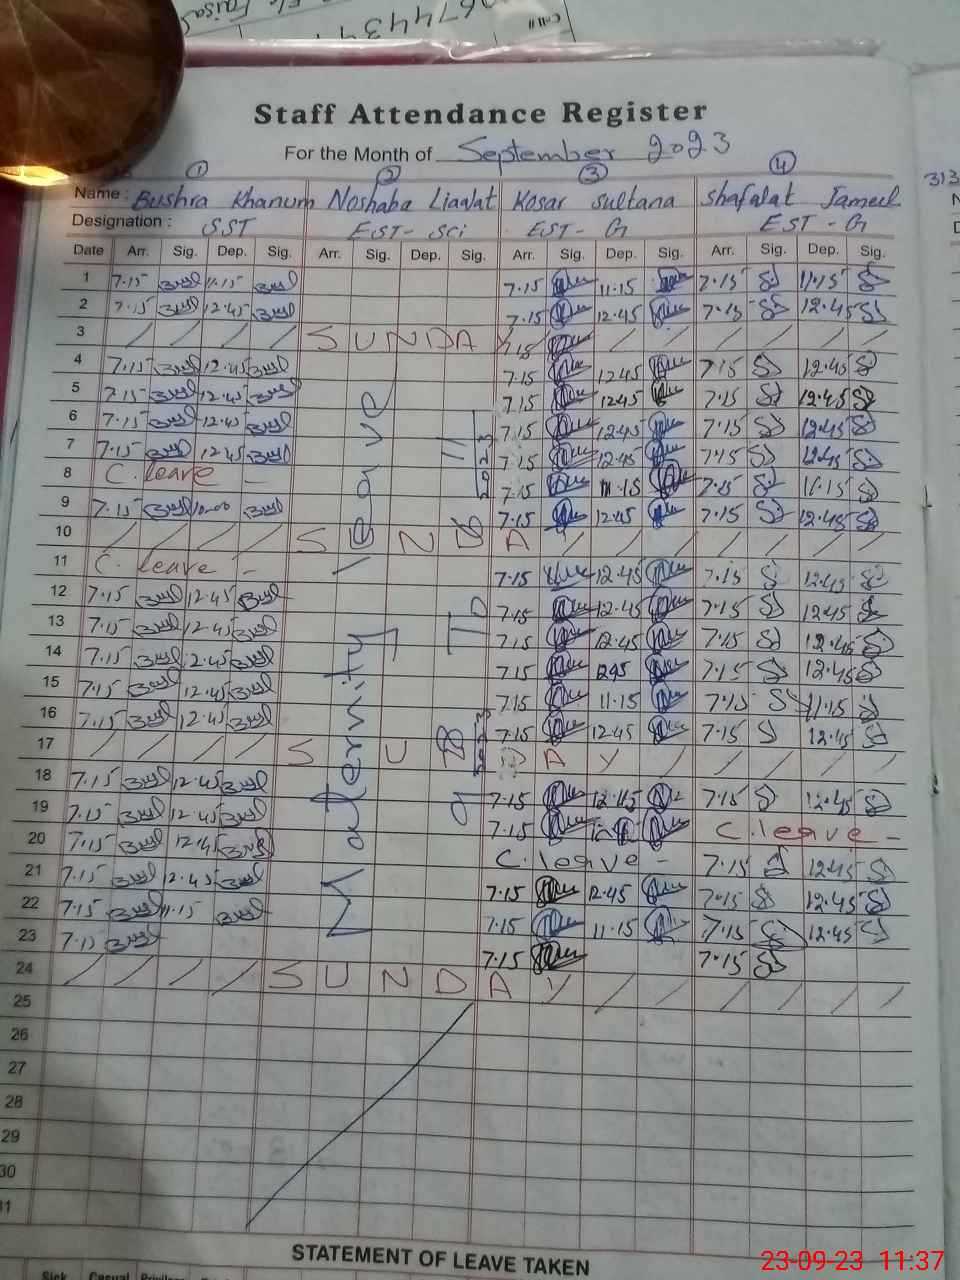 67443
Staff Attendance Register
For the Month of September 2023
1 2 3 4
Name : Bushra Khanum Noshaba Liaqat Kosar Sultana Shafalat Jameel
Designation : SST EST- Sci EST- G EST - G
Date Arr. Sig. Dep. Sig. Arr. Sig. Dep. Sig. Arr. Sig. Dep. Sig. Arr. Sig. Dep. Sig.
1 7.15 11.15 7.15 11.15 7.15 11.15
2 7.15 12.45 7.15 12.45 7.15 12.45
3 SUNDAY 7.15
4 7.15 12.45 7.15 12.45 7.15 12.45
5 7.15 12.45 7.15 12.45 7.15 12.45
6 7.15 12.45 7.15 12.45 7.15 12.45
7 7.15 12.45 7.15 12.45 7.15 12.45
8 C. leave - 7.15 11.15 7.15 11.15
9 7.15 7.15 12.45 7.15 12.45
10 SUNDA
11 C. leave - 7.15 12.45 7.15 12.45
12 7.15 12.45 7.15 12.45 7.15 12.45
13 7.15 12.45 7.15 12.45 7.15 12.45
14 7.15 12.45 7.15 1245 7.15 12.45
15 7.15 12.45 7.15 11.15 7.15 11.15
16 7.15 12.45 7.15 12.45 7.15 12.45
17 SUNDAY
18 7.15 12.45 7.15 12.45 7.15 12.45
19 7.15 12.45 7.15 C. leave -
20 7.15 12.45 C. leave - 7.15 12.45
21 7.15 12.45 7.15 12.45 7.15 12.45
22 7.15 11.15 7.15 11.15 7.15 12.45
23 7.15 7.15 7.15
24 SUNDAY
25
26
27
28
29
30
31
Maternity leave
2023
To
2023
STATEMENT OF LEAVE TAKEN
Sick Casual
313
23-09-23 11:37